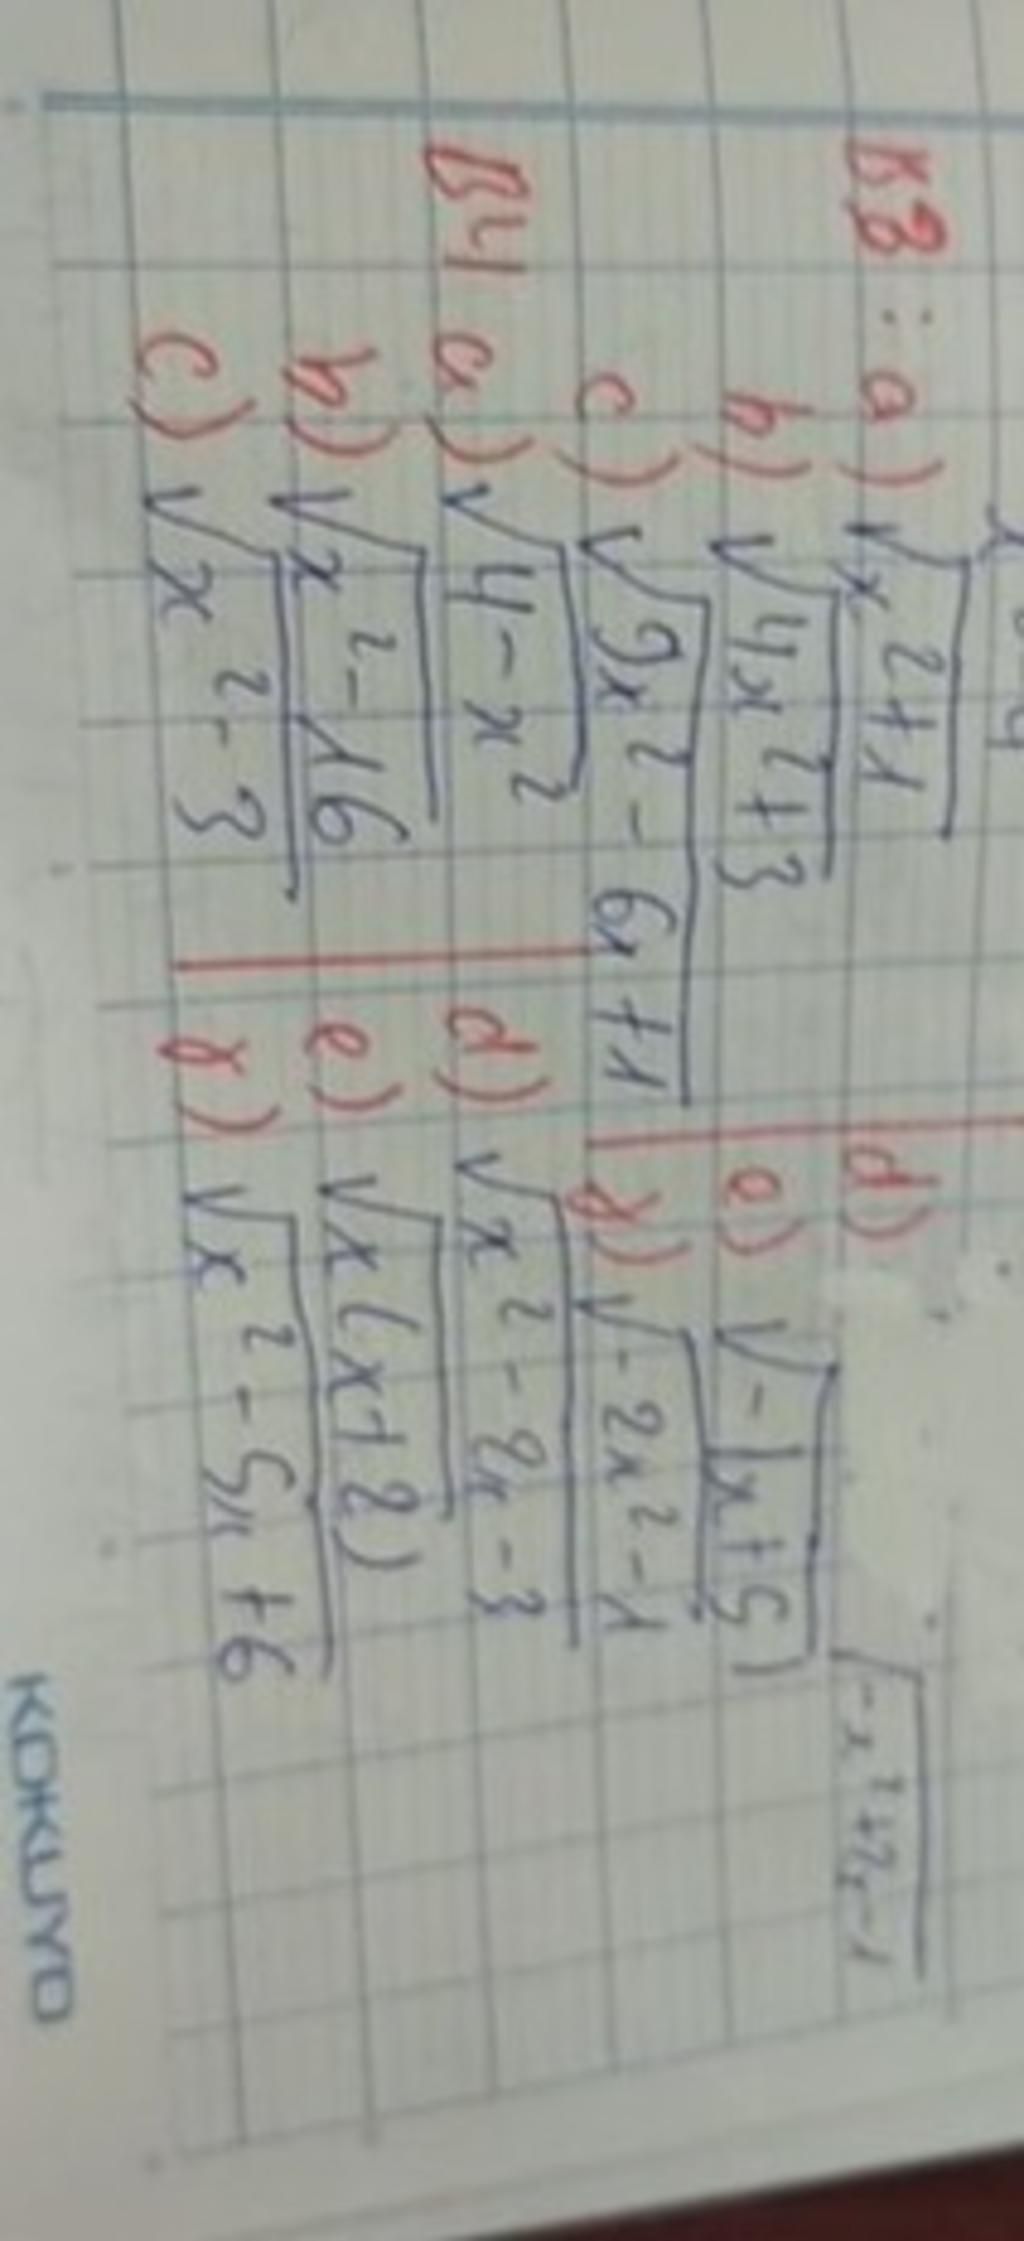 B3: a) √x²+1
d) √-x²+2x-1
b) √4x²+3
e) √-|x+5|
c) √9x²-6x+1
f) √-2x²-1
B4 a) √4-x²
d) √x²-2x-3
b) √x²-16
e) √x(x+2)
c) √x²-3
f) √x²-5x+6
KOKUYO